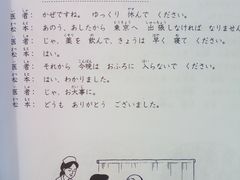 医者：かぜですね。ゆっくり 休んで ください。
松本：あのう、あしたから 東京へ 出張しなければ なりませ
医者：じゃ、薬を 飲んで、きょうは 早く 寝て ください。
松本：はい。
医者：それから 今晩は おふろに 入らないで ください。
松本：はい、わかりました。
医者：じゃ、お大事に。
松本：どうも ありがとう ございました。